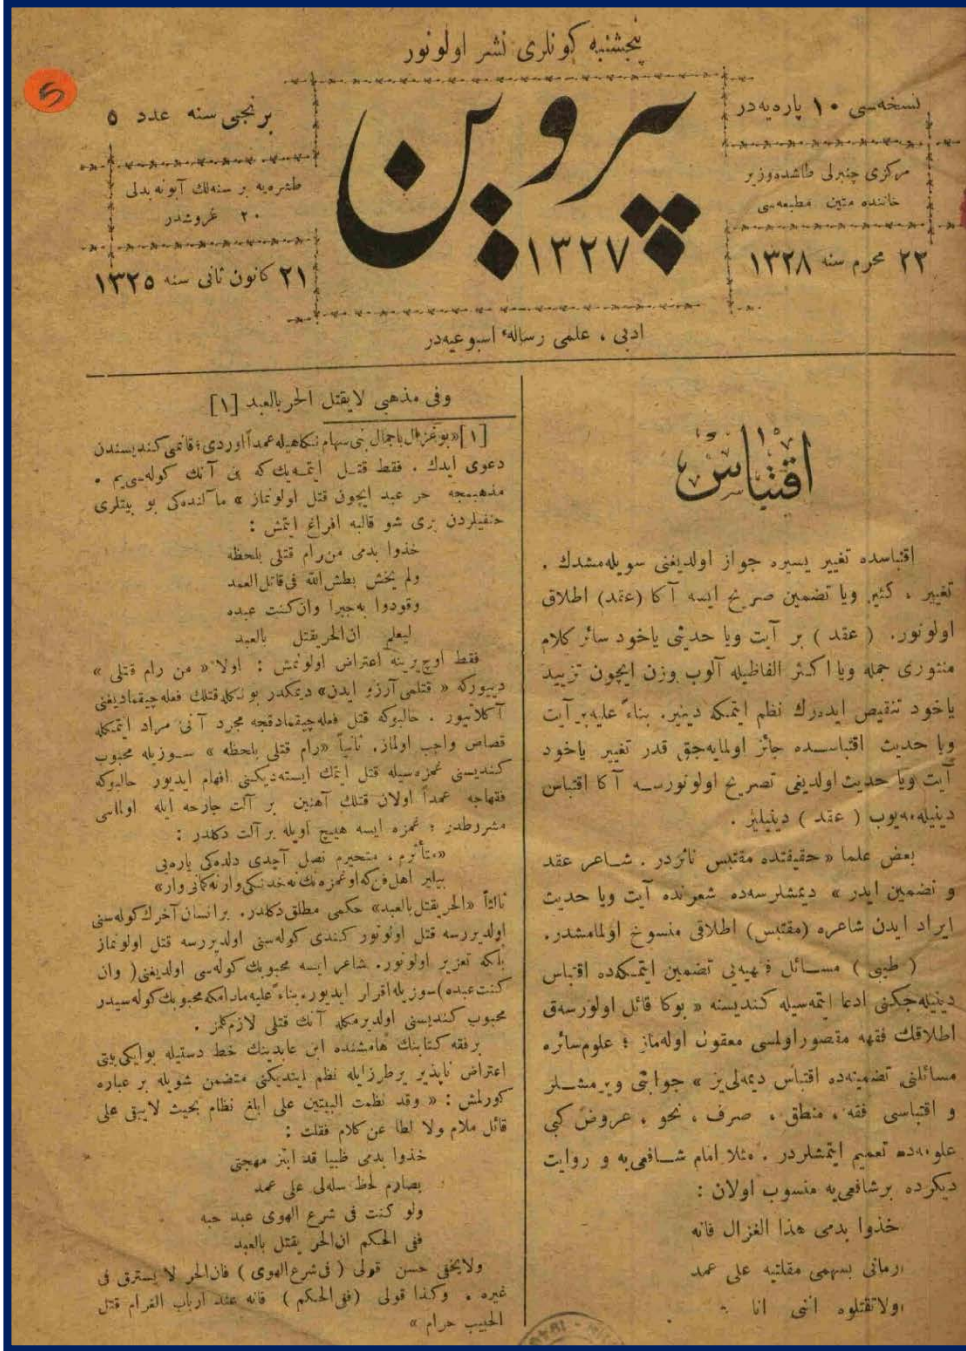 پنجشنبه كونلری نشر اولونور
5
نسخه‌سی ١٠ پاره‌یه‌در
پروین
١٣٢٧
برنجی سنه عدد ٥
مركزی چنبرلی طاشده وزیر
خاننده متین مطبعه‌سی
طشره‌یه بر سنه‌لك آبونه بدلی
٢٠ غروشدر
٢٢ محرم سنه ١٣٢٨
٢١ كانون ثانی سنه ١٣٢٥
ادبی ، علمی رسالهٔ اسبوعیه‌در
اقتباس
اقتباسده تغییر یسیره جواز اولدیغنی سویله‌مشدك .
تغییر ، كثیر ویا تضمین صریح ایسه آكا (عقد) اطلاق
اولونور. ( عقد ) بر آیت ویا حدیثی یاخود سائر كلام
منثوری جمله ویا اكثر الفاظیله آلوب وزن ایچون تزیید
یاخود تنقیص ایدەرك نظم ایتمكه دینیر. بناءً علیه بر آیت
ویا حدیث اقتباسنده جائز اولمایه‌جق قدر تغییر یاخود
آیت ویا حدیث اولدیغی تصریح اولونورسه آكا اقتباس
دینیله‌میوب ( عقد ) دینیلیر .
بعض علما « حقیقتده مقتبس ناثردر . شاعر عقد
و تضمین ایدر » دیمشلرسه‌ده شعرنده آیت ویا حدیث
ایراد ایدن شاعره (مقتبس) اطلاقی منسوخ اولمامشدر.
( طیبی ) مسائل فقهیه‌یی تضمین ایتمكده اقتباس
دینیله‌جكنی ادعا ایتمه‌سیله كندیسنه « بوكا قائل اولورسه‌ق
اطلاقك فقهه مقصور اولمسی معقول اوله‌ماز ؛ علوم سائره
مسائلنی تضمینه‌ده اقتباس دیمه‌لی‌یز » جوابنی ویرمشلر
و اقتباسی فقه ، منطق ، صرف ، نحو ، عروض كبی
علومه‌ده تعمیم ایتمشلردر . مثلا امام شافعی‌یه و روایت
دیكرده بر شافعی‌یه منسوب اولان :
خذوا بدمی هذا الغزال فانه
رمانی بسهمی مقلتیه علی عمد
ولا تقتلوه اننی انا
وفی مذهبی لایقتل الحر بالعبد [١]
[١] «بو غزال باجمال بنی سهام نكاهیله عمداً اوردی ؛ قانمی كندیسندن
دعوی ایدك . فقط قتل ایتمه‌یك كه بن آنك كوله‌سی‌یم .
مذهبمجه حر عبد ایچون قتل اولونماز » مآلنده‌كی بو بیتلری
حنفیلردن بری شو قالبه افراغ ایتمش :
خذوا بدمی من رام قتلی بلحظه
ولم یخش بطش الله فی قاتل العمد
وقودوا به جبرا وان كنت عبده
لیعلم ان الحر یقتل بالعبد
فقط اوچ یرینه اعتراض اولونمش : اولا « من رام قتلی »
دییوركه « قتلمی آرزو ایدن» دیمكدر بونكله قتلك فعله چیقمادیغی
آكلاشیور . حالبوكه قتل فعله چیقمادقجه مجرد آنی مراد ایتمكله
قصاص واجب اولماز. ثانیاً «رام قتلی بلحظه » سوزیله محبوب
كندیسنی غمزه‌سیله قتل ایتمك ایسته‌دیكنی افهام ایدیور حالبوكه
فقهاجه عمداً اولان قتلك آهنین بر آلت جارحه ایله اولماسی
مشروطدر ؛ غمزه ایسه هیچ اویله بر آلت دكلدر :
«متأثرم ، متحیرم نصل آچدی دلده‌كی یاره‌یی
بیلیر اهل فن كه او غمزه‌نك نه خدنكی وار نه كمانی وار»
ثالثاً «الحر یقتل بالعبد» حكمی مطلق دكلدر. بر انسان آخرك كوله‌سنی
اولدیررسه قتل اولونور كندی كوله‌سنی اولدیررسه قتل اولونماز
بلكه تعزیر اولونور. شاعر ایسه محبوبك كوله‌سی اولدیغنی( وان
كنت عبده) سوزیله اقرار ایدیور، بناءً علیه مادامكه محبوبك كوله‌سیدر
محبوب كندیسنی اولدیرمكله آنك قتلی لازم كلمز .
بر فقه كتابنك هامشنده ابن عابدینك خط دستیله بو ایكی بیتی
اعتراض ناپذیر بر طرز ایله نظم ایتدیكنی متضمن شویله بر عباره
كورلمش : « وقد نظمت البیتین علی ابلغ نظام بحیث لایبقی علی
قائل ملام ولا لطا عن كلام فقلت :
خذوا بدمی ظبیا قد ابتز مهجتی
بصارم لحظ سله لی علی عمد
ولو كنت فی شرع الهوی عبد حبه
ففی الحكم ان الحر یقتل بالعبد
ولایخفی حسن قولی ( فی شرع الهوی ) فان الحر لا یسترق فی
غیره . وكذا قولی (ففی الحكم ) فانه عند ارباب الغرام قتل
الحبیب حرام »